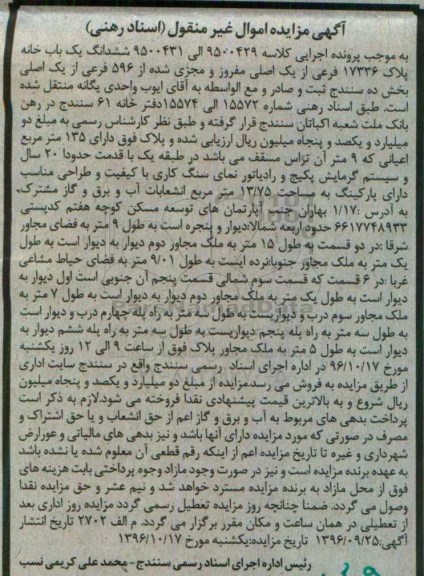 آگهی مزایده اموال غیر منقول (اسناد رهنی)
به موجب پرونده اجرایی کلاسه ۹۵۰۰۴۲۹ الی ۹۵۰۰۴۳۱ ششدانگ یک باب خانه
پلاک ۱۷۳۳۶ فرعی از یک اصلی مفروز و مجزی شده از ۵۹۶ فرعی از یک اصلی
بخش ده سنندج ثبت و صادر و مع الواسطه به آقای ایوب واحدی یگانه منتقل شده
است. طبق اسناد رهنی شماره ۱۵۵۷۲ الی ۱۵۵۷۴دفتر خانه ۶۱ سنندج در رهن
بانک ملت شعبه اکباتان سنندج قرار گرفته و طبق نظر کارشناس رسمی به مبلغ دو
میلیارد و یکصد و پنجاه میلیون ریال ارزیابی شده و پلاک فوق دارای ۱۳۵ متر مربع
اعیانی که ۹ متر آن تراس مسقف می باشد در طبقه یک با قدمت حدودا ۲۰ سال
و سیستم گرمایش پکیج و رادیاتور نمای سنگ کاری با کیفیت و طراحی مناسب
دارای پارکینگ به مساحت ۱۳/۷۵ متر مربع انشعابات آب و برق و گاز مشترک،
به آدرس :۱/۱۷ بهاران جنب آپارتمان های توسعه مسکن کوچه هفتم کدپستی
۶۶۱۷۷۴۸۹۳۳ حدود اربعه شمالا:دیوار و پنجره است به طول ۹ متر به فضای مجاور
شرقا :در دو قسمت به طول ۱۵ متر به ملک مجاور دوم دیوار به دیوار است به طول
یک متر به ملک مجاور جنوبا:نرده ایست به طول ۹/۰۱ متر به فضای حیاط مشاعی
غربا :در ۶ قسمت که قسمت سوم شمالی قسمت پنجم آن جنوبی است اول دیوار به
دیوار است به طول یک متر به ملک مجاور دوم دیوار به دیوار است به طول ۷ متر به
ملک مجاور سوم درب و دیواریست به طول سه متر به راه پله چهارم درب و دیوار است
به طول سه متر به راه پله پنجم دیواریست به طول سه متر به راه پله ششم دیوار به
دیوار است به طول ۵ متر به ملک مجاور پلاک فوق از ساعت ۹ الی ۱۲ روز یکشنبه
مورخ ۹۶/۱۰/۱۷ در اداره اجرای اسناد رسمی سنندج واقع در سنندج سایت اداری
از طریق مزایده به فروش می رسد.مزایده از مبلغ دو میلیارد و یکصد و پنجاه میلیون
ریال شروع و به بالاترین قیمت پیشنهادی نقدا فروخته می شود.لازم به ذکر است
پرداخت بدهی های مربوط به آب و برق و گاز اعم از حق انشعاب و یا حق اشتراک و
مصرف در صورتی که مورد مزایده دارای آنها باشد و نیز بدهی های مالیاتی و عوارض
شهرداری و غیره تا تاریخ مزایده اعم از اینکه رقم قطعی آن معلوم شده یا نشده باشد
به عهده برنده مزایده است و نیز در صورت وجود مازاد وجوه پرداختی بابت هزینه های
فوق از محل مازاد به برنده مزایده مسترد خواهد شد و نیم عشر و حق مزایده نقدا
وصول می گردد. ضمنا چنانچه روز مزایده تعطیل رسمی گردد مزایده روز اداری بعد
از تعطیلی در همان ساعت و مکان مقرر برگزار می گردد. م الف ۲۷۰۲ تاریخ انتشار
آگهی:۱۳۹۶/۰۹/۲۵ تاریخ مزایده:یکشنبه مورخ ۱۳۹۶/۱۰/۱۷
رئیس اداره اجرای اسناد رسمی سنندج-محمد علی کریمی نسب